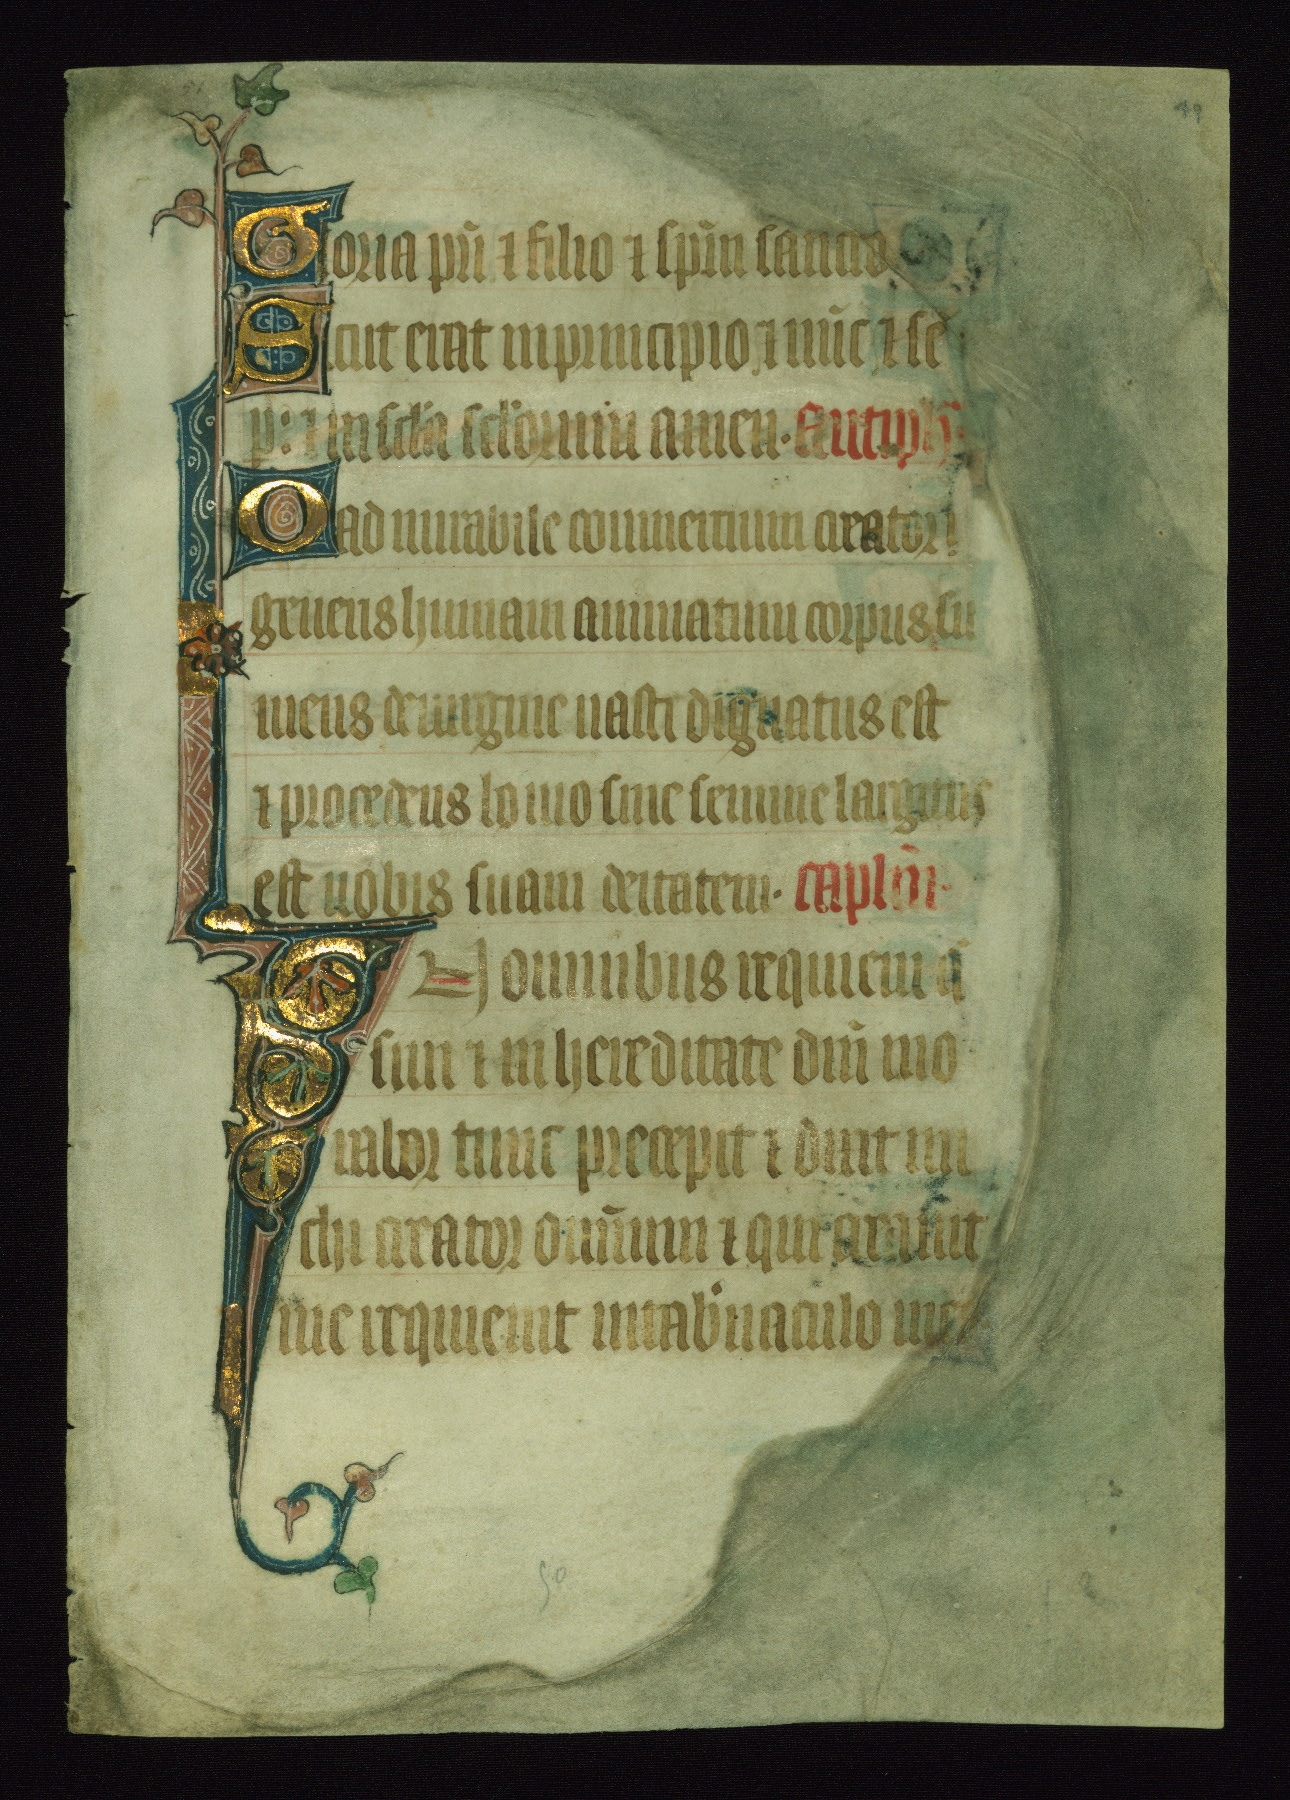 49
Gloria pr̄i ⁊ filio ⁊ sp̄m sancto
Sicut erat in principio ⁊ nūc ⁊ sē
p̱: ⁊ in scl̄a sclōrum amen. Antiph̄
O admirabile commertium creator
generis humani animatum corpus su
mens de uirgine nasci dignatus est
⁊ procedens homo sine semine largitus
est nobis suam deitatem. capl̄m.
In omnibus requiem q̄
siui ⁊ in hereditate dn̄i mo
rabor tunc precepit ⁊ dixit mi
chi creator omn̄ium ⁊ qui creauit
me requieuit in tab'naculo me
50